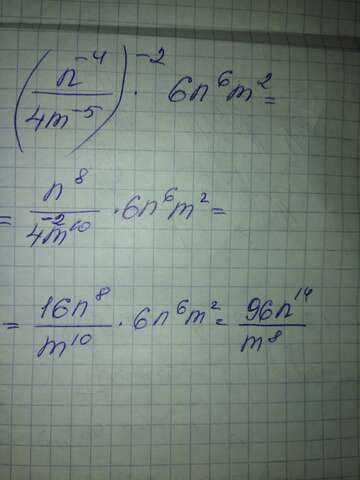 (n⁻⁴/4m⁻⁵)⁻² · 6n⁶m² =
= n⁸/4⁻²m¹⁰ · 6n⁶m² =
= 16n⁸/m¹⁰ · 6n⁶m² = 96n¹⁴/m⁸